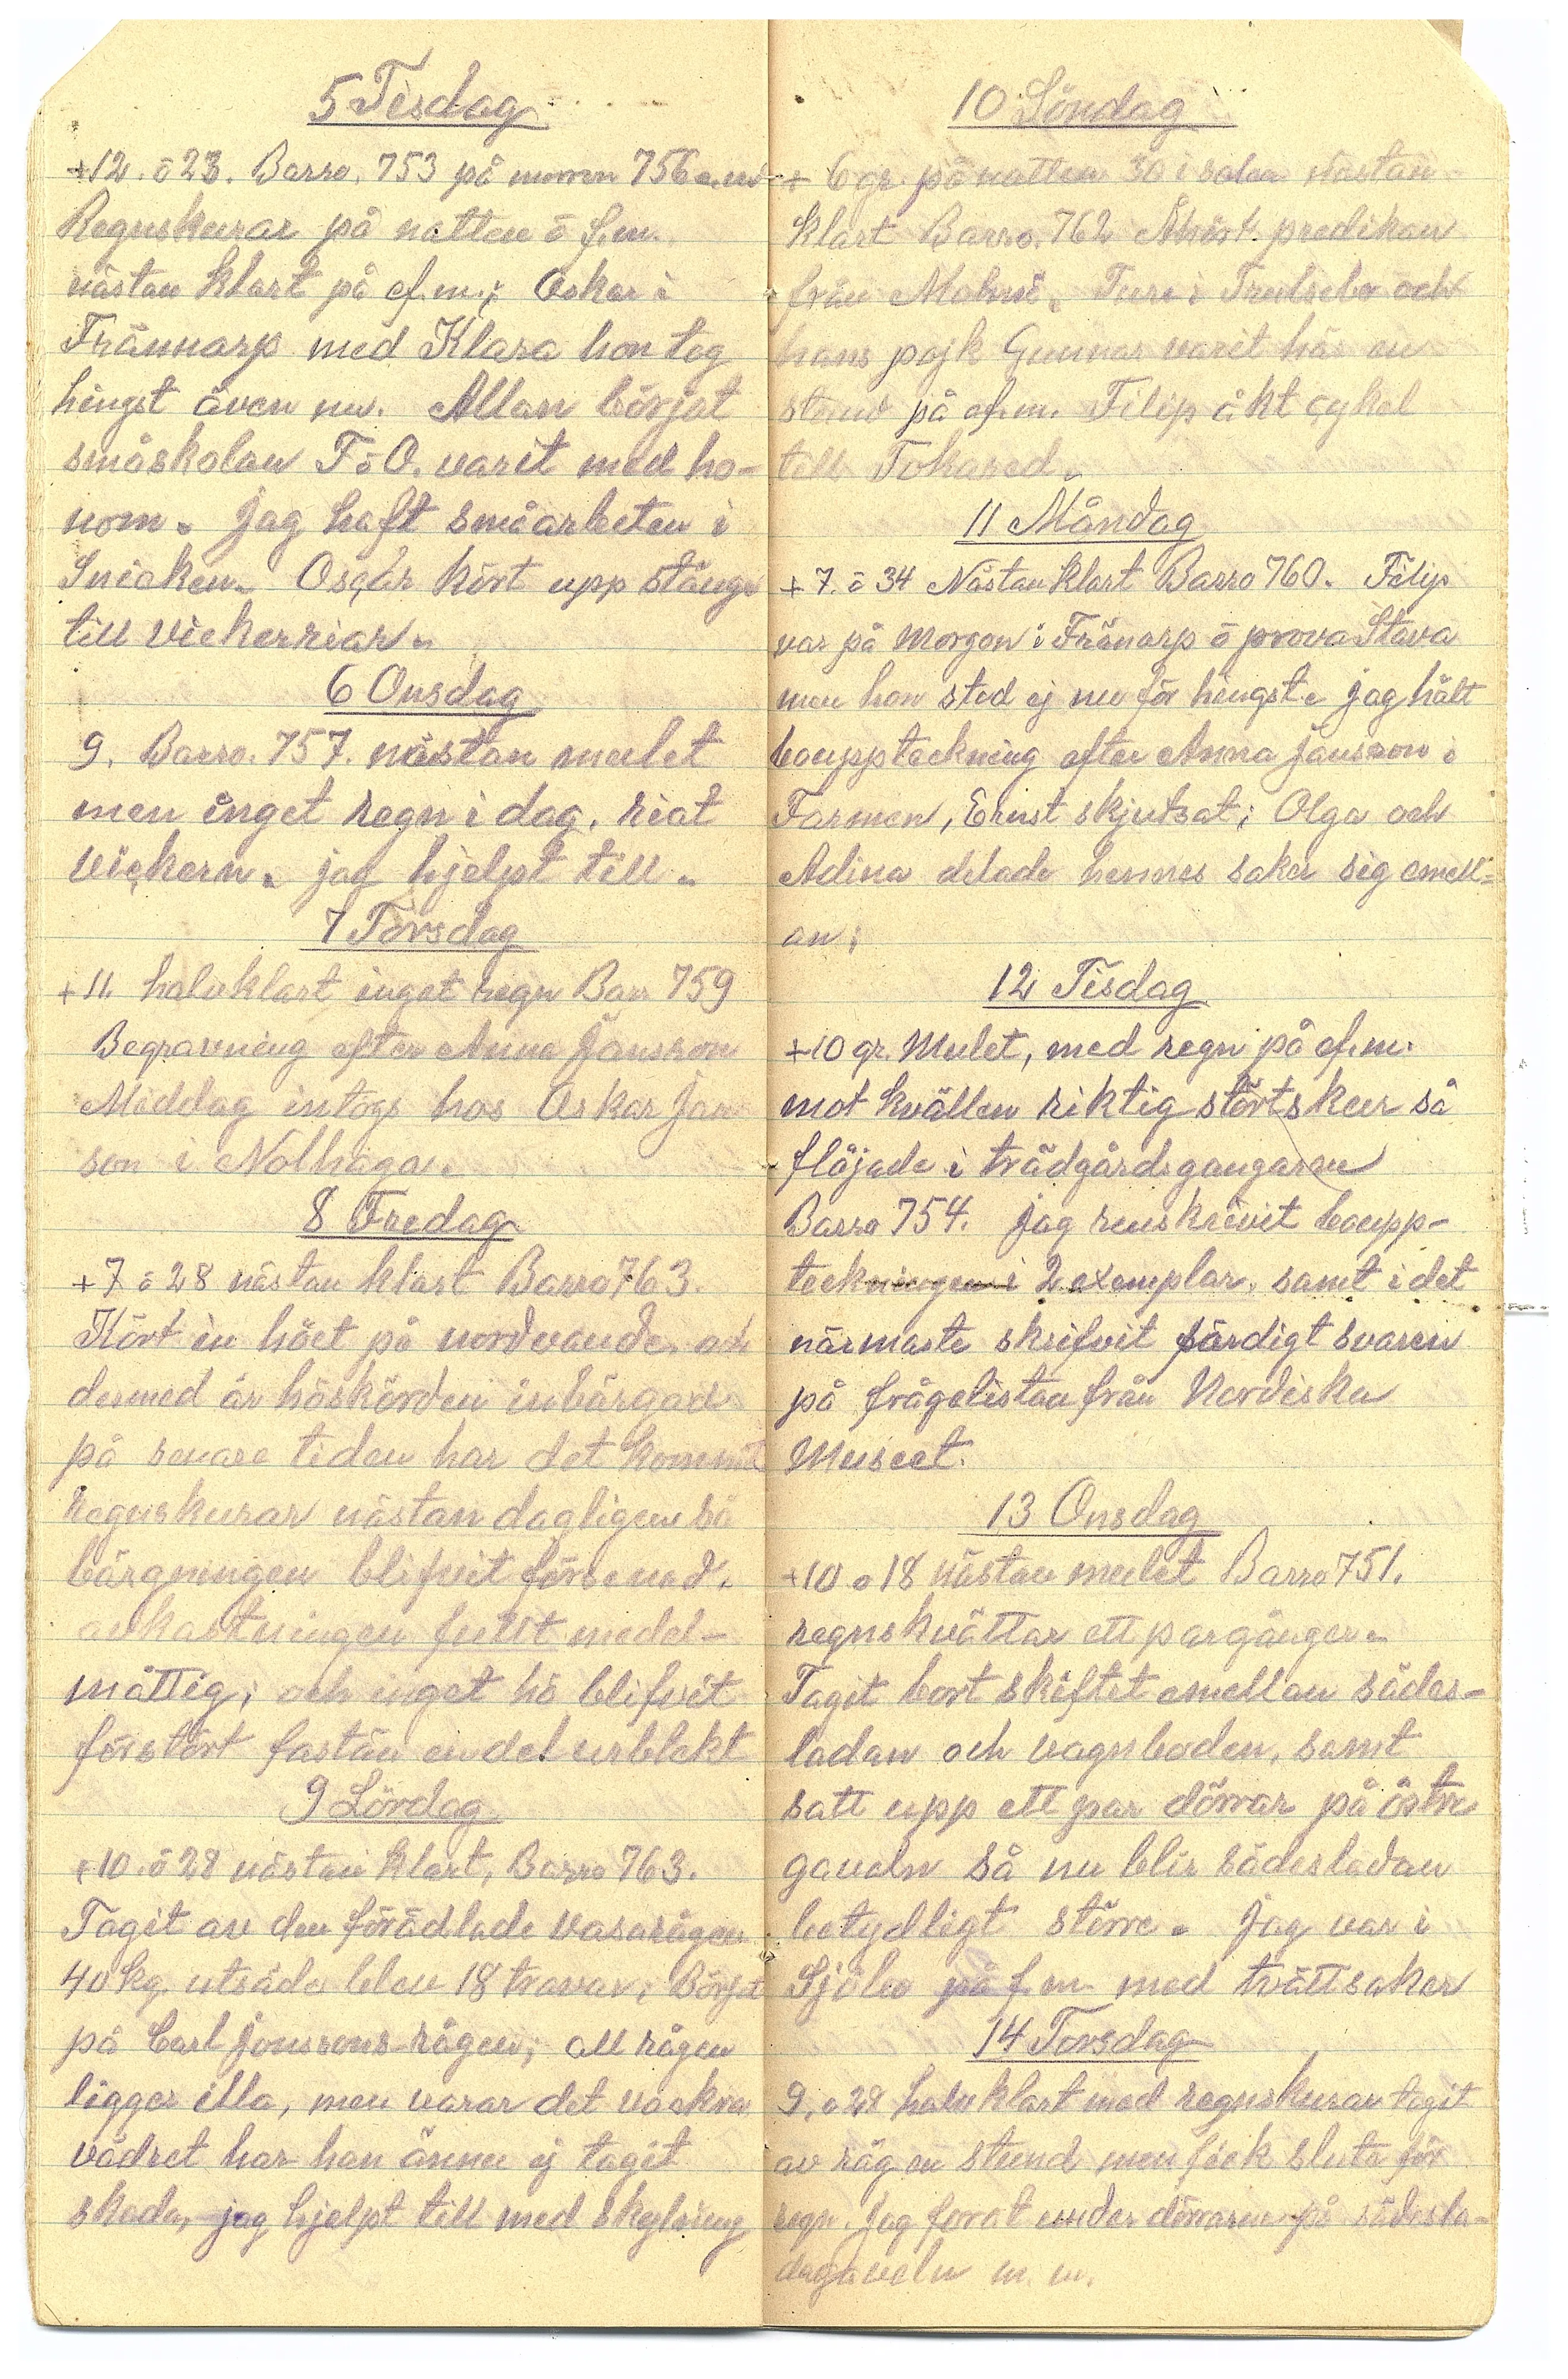 5 Tisdag
+12. ö 23. Barro. 753 på morron 756 e.m
Regnskurar på natten ö f.m.
nästan klart på ef.m.; Oskar i
Frännarp med Klara hon tog
hingst även nu. Allan börjat
småskolan F ö O. varit med ho-
nom. Jag haft småarbeten i
Snicken. Oscar kört upp stänger
till vickerriar.
6 Onsdag
9. Barro. 757. nästan mulet
men inget regn i dag. riat
vickern. jag hjelpt till.
7 Torsdag
+11. halvklart inget regn Barr 759
Begravning efter Anna Jansson
Middag intogs hos Oskar Jan
son i Nolhaga.
8 Fredag
+7 ö 28 nästan klart Barro 763.
Kört in höet på nordvande och
dermed är höskörden inbärgad
på senare tiden har det kommit
regnskurar nästan dagligen så
bärgningen blifvit försenad.
avkastningen fullt medel-
måttig; och inget hö blifvit
förstört fastän en del urblekt
9 Lördag
+10. ö 28 nästan klart, Barro 763.
Tagit av den förädlade vasarågen
40 kg. utsäde blev 18 travar; Börjat
på Carl Jonssons rågen; all rågen
ligger illa, men varar det vackra
vädret har han ännu ej tagit
skada, jag hjelpt till med skylning
10 Söndag
+ 6 gr. på natten 30 i solen Nästan
klart Barro. 762 Åhört predikan
från Malmö. Ture i Trulsebo och
hans pojk Gunnar varit här en
stund på ef.m. Filip åkt cykel
till Tokared.
11 Måndag
+7. ö 34 Nästan klart Barro 760. Filip
var på Morgon i Fränarp ö prova Stava
men hon stod ej nu för hingst. jag hält
bouppteckning efter Anna Jansson i
Farmen, Ernst skjutsat; Olga och
Adina delade hennes saker sig emell-
an;
12 Tisdag
+10 gr. Mulet, med regn på ef.m.
mot kvällen riktig störtskur så
flöjade i trädgårdsgangaran
Barro 754. Jag renskrivit boupp-
teckningen i 2 exemplar. samt i det
närmaste skrifvit färdigt svaren
på frågelistan från Nordiska
Museet.
13 Onsdag
+10 o 18 nästan mulet Barro 751.
regnskvättar ett par gånger.
Tagit bort skiftet emellan sädes-
ladan och vagnboden, samt
satt upp ett par dörrar på östra
gaveln så nu blir sädesladan
betydligt större. Jag var i
Sjöbo på f.m. med tvättsaker
14 Torsdag
9. ö 28 halvklart med regnskurar tagit
av råg en stund men fick sluta för
regn. Jag forat under dörrarne på sädesla-
dagaveln m. m.